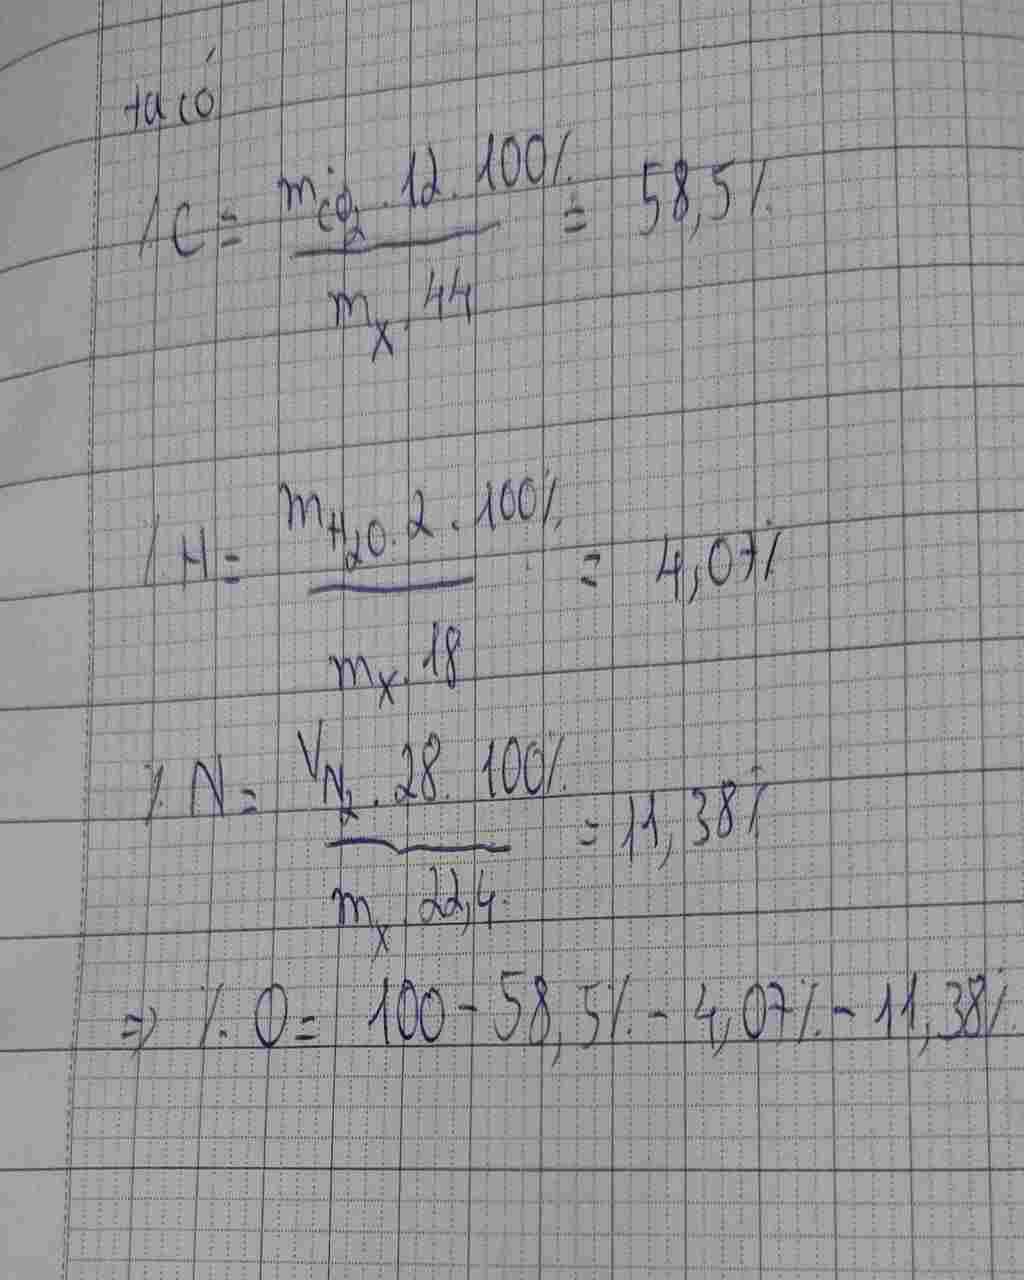 ta có
% C = m_CO₂ . 12 . 100% / m_X . 44 = 58,5%
% H = m_H₂O . 2 . 100% / m_X . 18 = 4,07%
% N = V_N₂ . 28 . 100% / m_X . 22,4 = 11,38%
=> % O = 100 - 58,5% - 4,07% - 11,38%